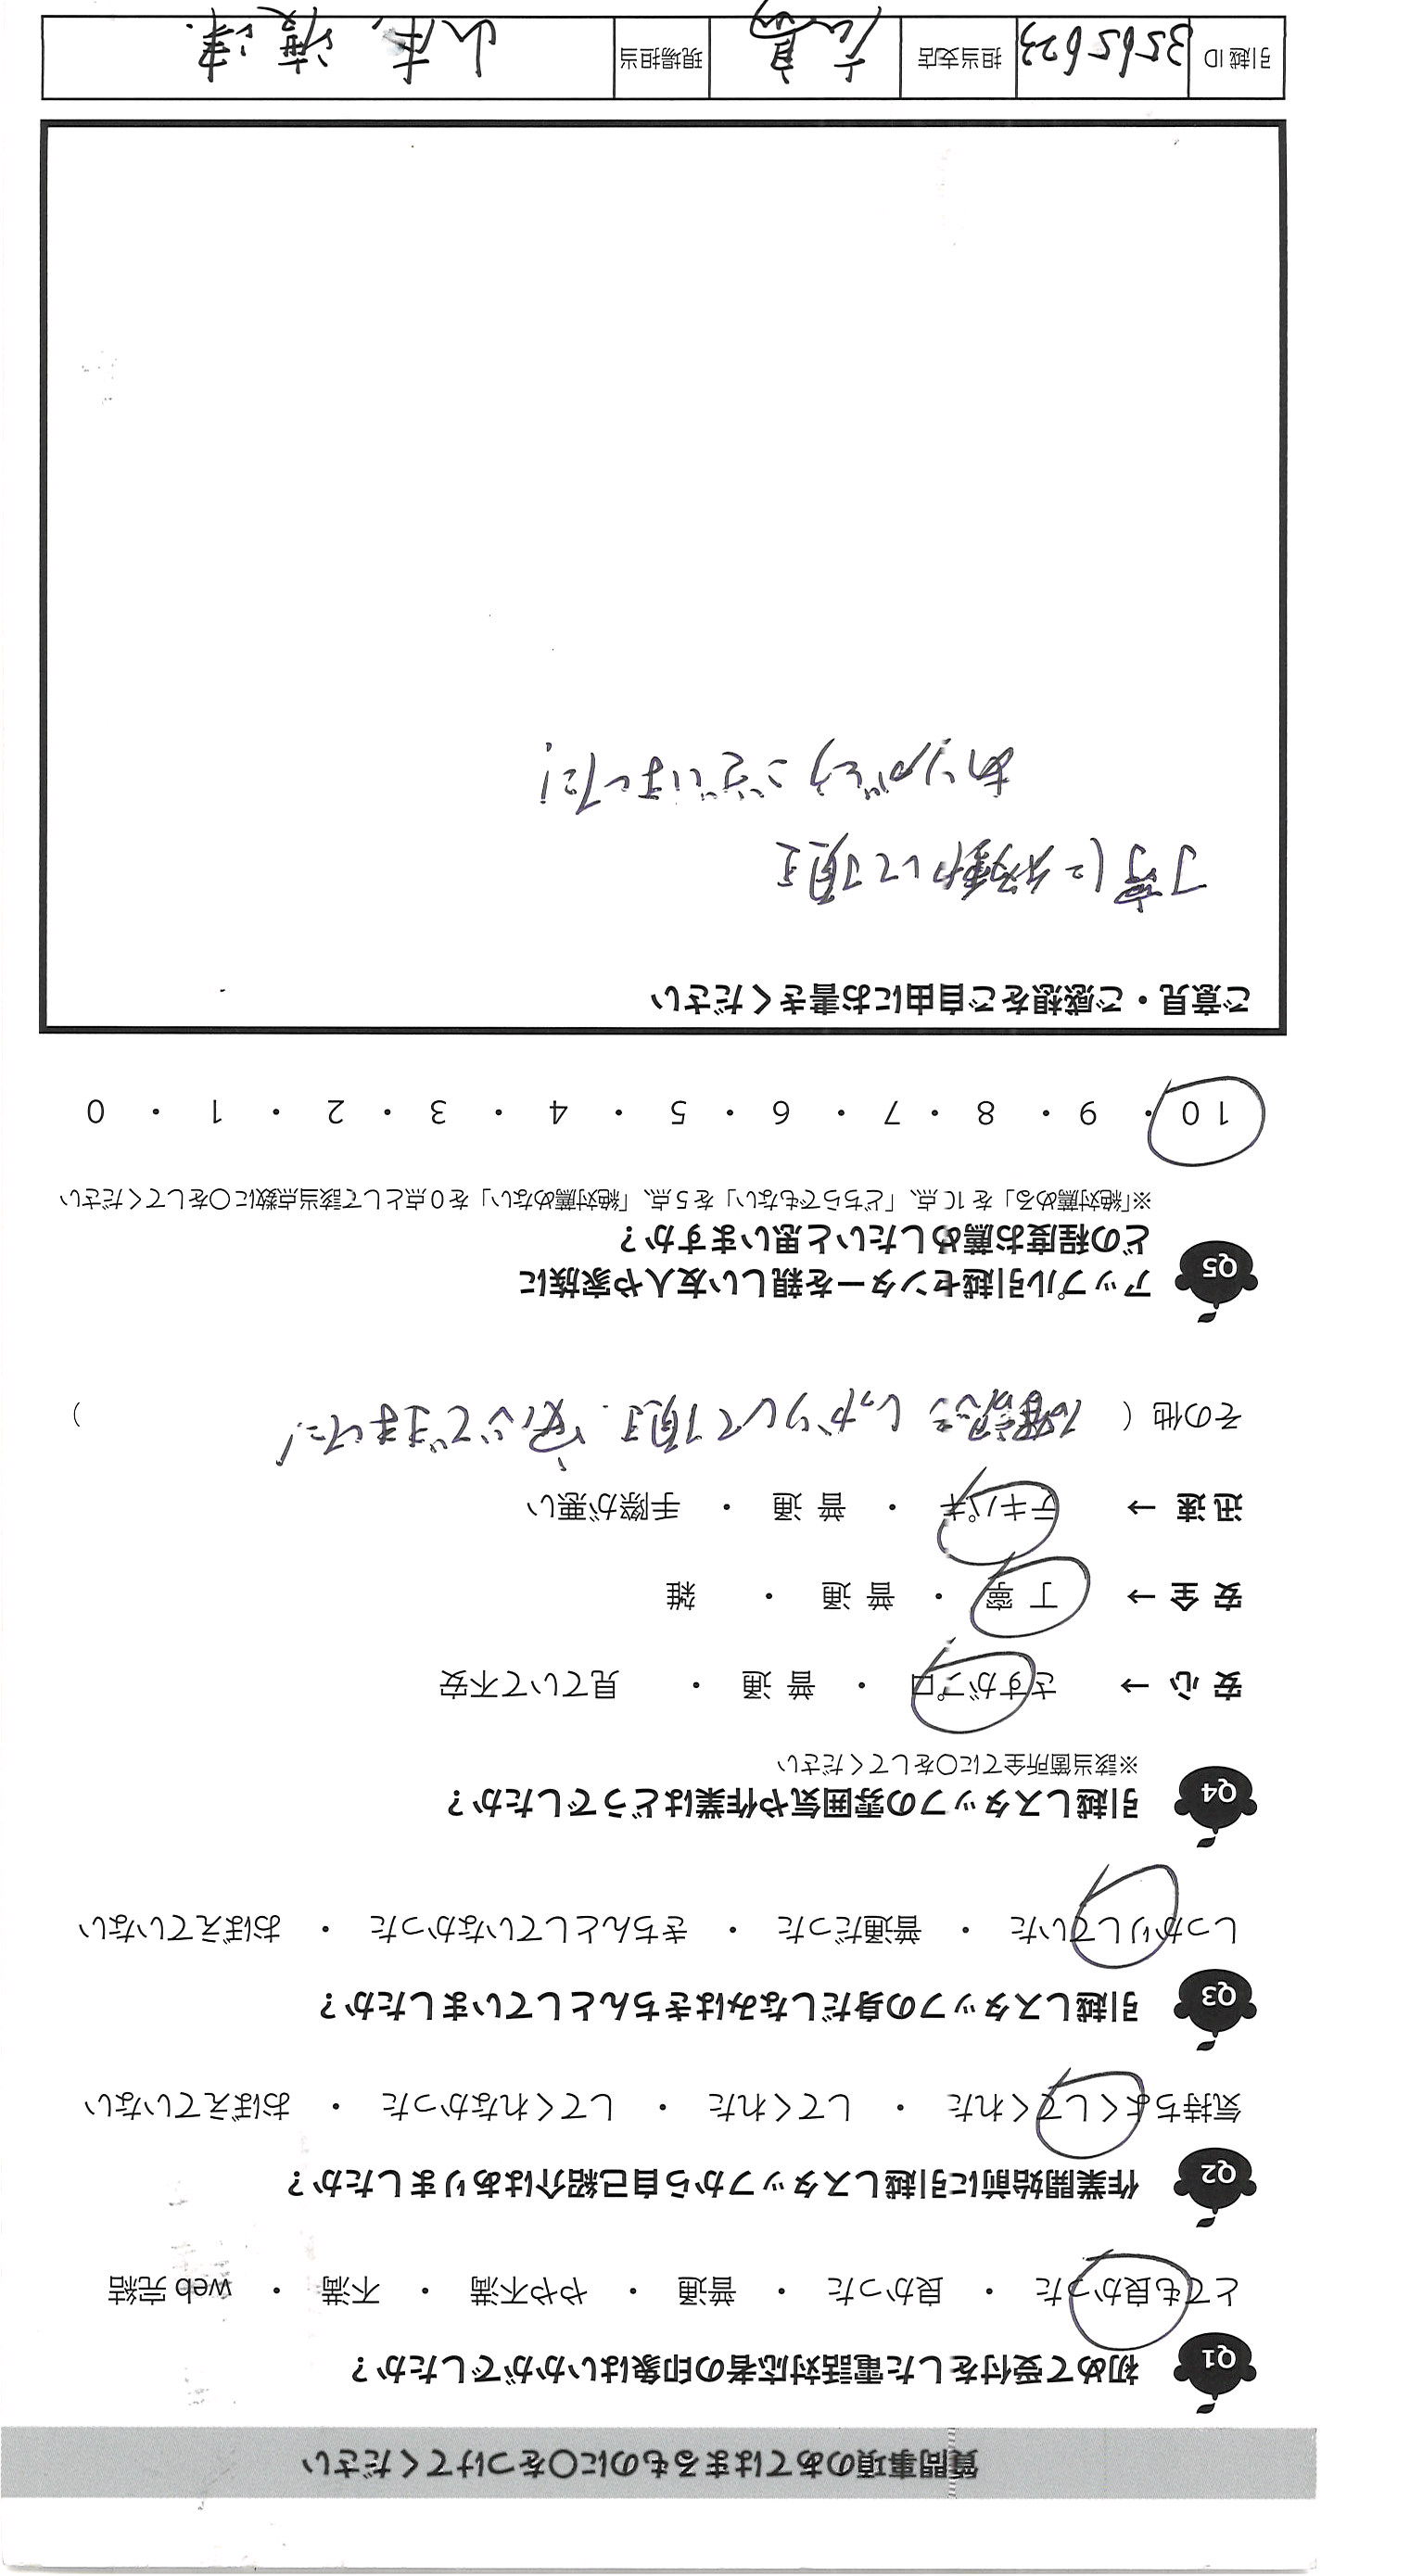 質問事項のあてはまるものに〇をつけてください
Q1 初めて受付をした電話対応者の印象はいかがでしたか？
とても良かった ・ 良かった ・ 普通 ・ やや不満 ・ 不満 ・ web 完結
Q2 作業開始前に引越しスタッフから自己紹介はありましたか？
気持ちよくしてくれた ・ してくれた ・ してくれなかった ・ おぼえていない
Q3 引越しスタッフの身だしなみはきちんとしていましたか？
しっかりしていた ・ 普通だった ・ きちんとしていなかった ・ おぼえていない
Q4 引越しスタッフの雰囲気や作業はどうでしたか？
※該当箇所全てに〇をしてください
安 心 → さすがプロ ・ 普 通 ・ 見ていて不安
安 全 → 丁 寧 ・ 普 通 ・ 雑
迅 速 → テキパキ ・ 普 通 ・ 手際が悪い
その他 （ 確認をしっかりして頂き、安心できました！ ）
Q5 アップル引越センターを親しい友人や家族に
どの程度お薦めしたいと思いますか？
※「絶対薦める」を10点、「どちらでもない」を5点、「絶対薦めない」を0点として該当点数に〇をしてください
10 ・ 9 ・ 8 ・ 7 ・ 6 ・ 5 ・ 4 ・ 3 ・ 2 ・ 1 ・ 0
ご意見・ご感想をご自由にお書きください
丁寧に対応して頂き
ありがとうございました！
引越 ID 3565623 担当支店 現場担当